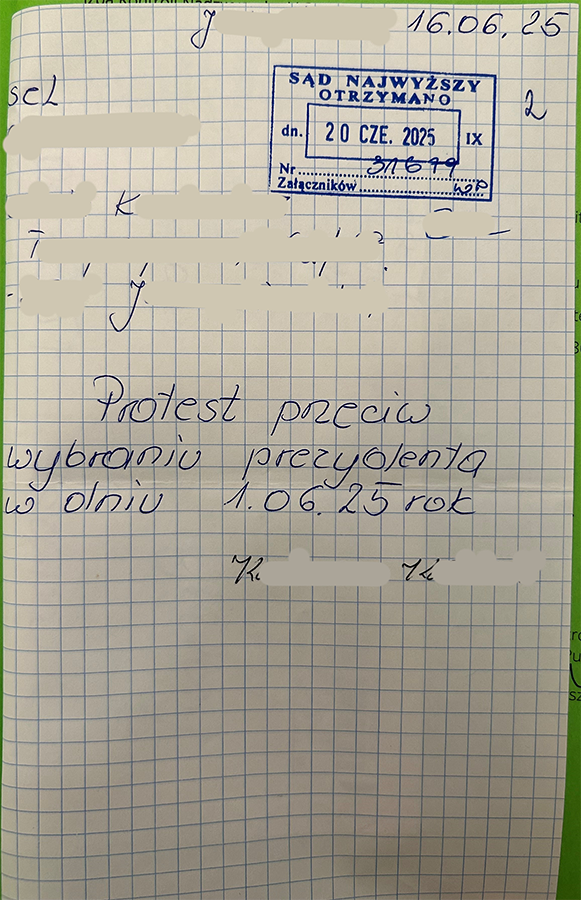 J 16.06.25
SĄD NAJWYŻSZY
OTRZYMANO
dn. 20 CZE. 2025 IX
Nr 31699
Załączników
2
K
J
Protest przeciw
wybraniu prezydenta
w dniu 1.06.25 rok